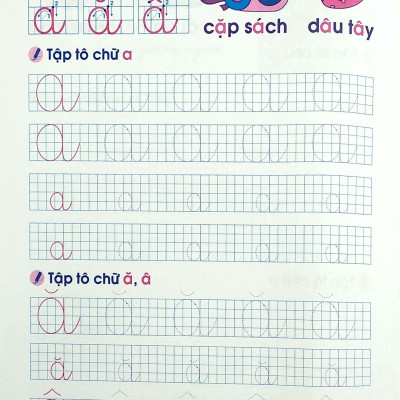 a ă â
cặp sách dâu tây
Tập tô chữ a
a a a a a
a a a a a
a a a a a
a a a a a
Tập tô chữ ă, â
ă ă ă ă ă
ă ă ă ă ă